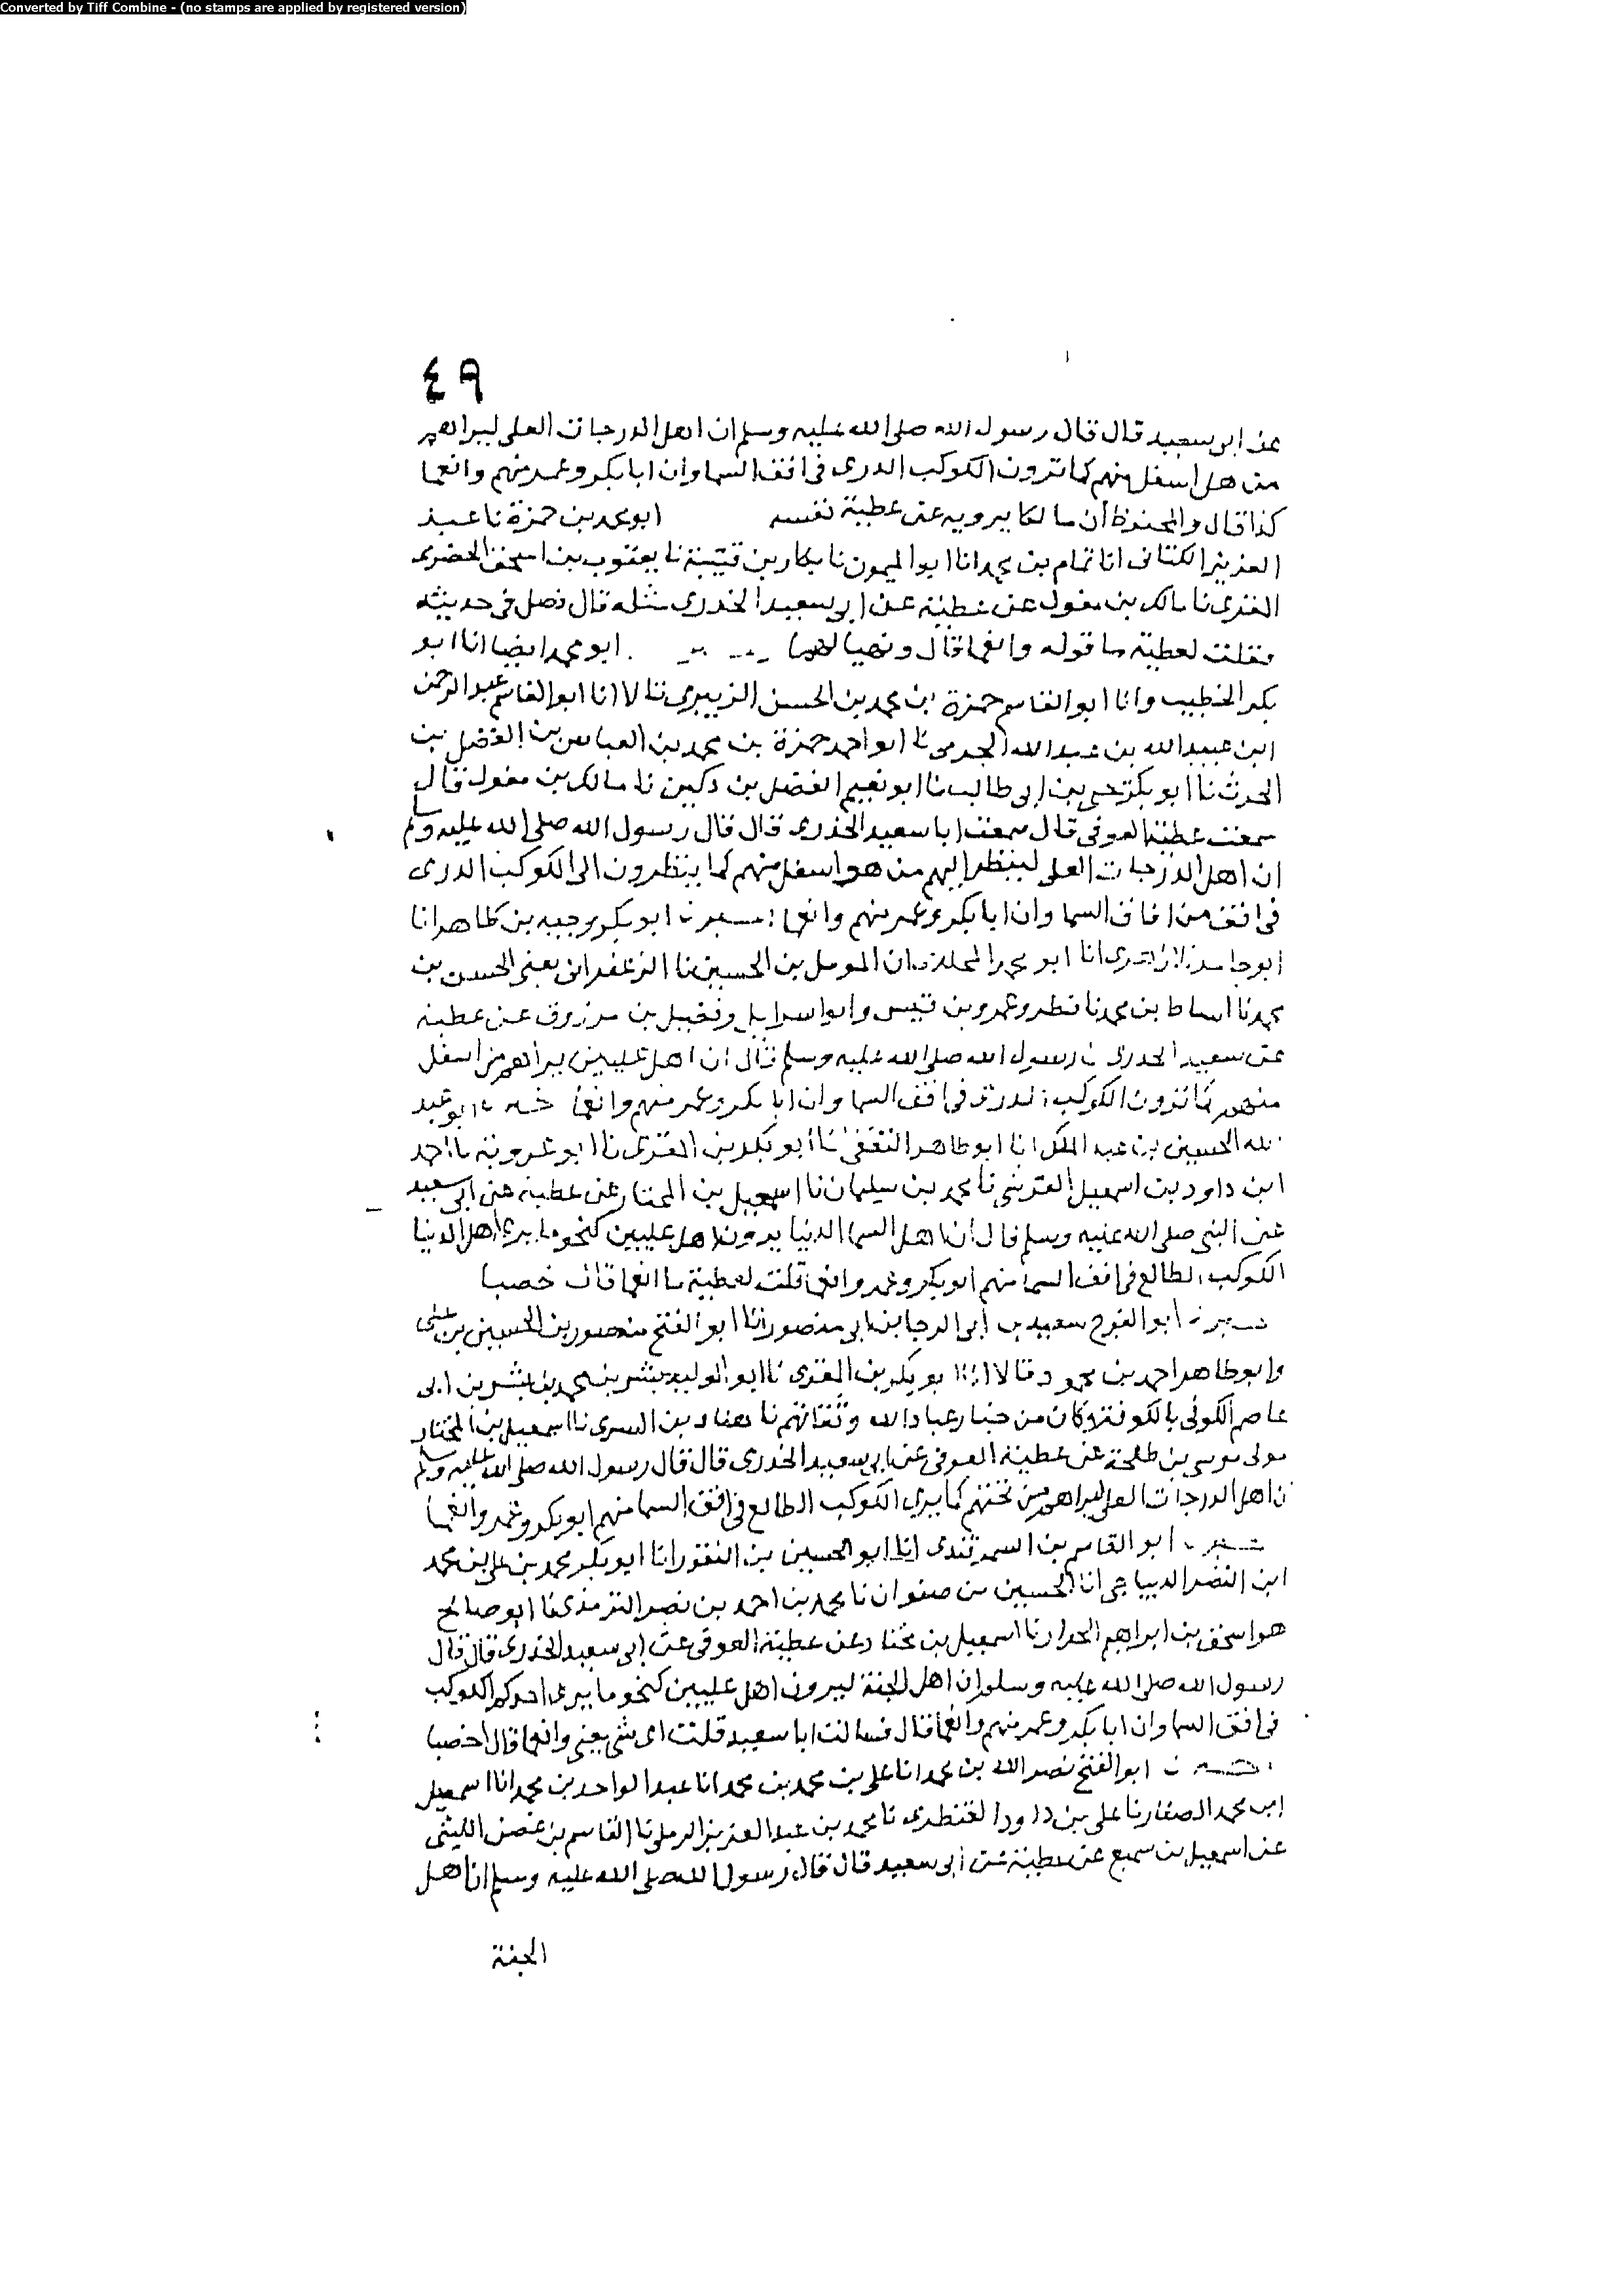 Converted by Tiff Combine - (no stamps are applied by registered version)
٤٩
عن ابى سعيد قال قال رسول الله صلى الله عليه وسلم ان اهل الدرجات العلى ليراهم
من هل اسفل منهم كما ترون الكوكب الدرى فى افق السما وان ابا بكر وعمر منهم وانعما
كذا قال والمحفوظ أن مالكا يرويه عن عطية نفسه ابو محمد بن حمزة نا عبد
العزيز الكتانى انا تمام بن محمد انا ابو الميمون نا بكار بن قتيبة نا يعقوب بن اسحق الحضرمى
المقرى نا مالك بن مغول عن عطية عن ابى سعيد الخدرى مثله قال فضل فى حديثه
فقلت لعطية ما قوله وانعما قال وهنيا لهما ابو محمد ايضا انا ابو
بكر الخطيب وانا ابو القاسم حمزة بن محمد بن الحسن الزبيرى قالا انا ابو القاسم عبد الرحمن
ابن عبيد الله بن عبد الله الحرمى نا ابو احمد حمزة بن محمد بن العباس بن الفضل بن
الحرث نا ابو بكر يحيى بن ابى طالب نا ابو نعيم الفضل بن دكين نا مالك بن مغول قال
سمعت عطية العوفى قال سمعت ابا سعيد الخدرى قال قال رسول الله صلى الله عليه وسلم
ان اهل الدرجات العلى لينظر اليهم من هو اسفل منهم كما ينظرون الى الكوكب الدرى
فى افق من افاق السما وان ابا بكر وعمر منهم وانعما ابو بكر وجيه بن طاهر انا
ابو حامد الازهرى انا ابو محمد المخلدى انا المومل بن الحسين نا الزعفرانى يعنى الحسن بن
محمد نا اسباط بن محمد نا فطر وعمرو بن قيس وابو اسرايل وفضيل بن مرزوق عن عطية
عن سعيد الخدرى رسول الله صلى الله عليه وسلم قال ان اهل عليين يراهم من اسفل
منهم كما ترون الكوكب الدرى فى افق السما وان ابا بكر وعمر منهم وانعما ابو عبد
الله الحسين بن عبد الملك انا ابو طاهر الثقفى نا أبو بكر بن المقرى نا ابو عروبة نا احمد
ابن داود بن اسمعيل القرشى نا محمد بن سليمان نا اسمعيل بن المختار عن عطية عن ابى سعيد
عن النبى صلى الله عليه وسلم قال ان اهل السما الدنيا يرون اهل عليين كنحو ما يرى اهل الدنيا
الكوكب الطالع فى افق السما منهم ابو بكر وعمر وانعما قلت لعطية ما انعما قال خصبا
ابو الفرج سعيد بن أبى الرجا بن ابى منصور انا ابو الفتح منصور بن الحسين بن على
وابو طاهر احمد بن محمود قالا انا ابو بكر بن المقرى نا ابو الوليد بشر بن محمد بن بشر بن ابى
عاصم الكوفى بالكوفة وكان من خيار عباد الله وثقاتهم نا هناد بن السرى نا اسمعيل بن المختار
مولى موسى بن طلحة عن عطية العوفى عن ابى سعيد الخدرى قال قال رسول الله صلى الله عليه وسلم
ان اهل الدرجات العلى ليراهم من تحتهم كما يرى الكوكب الطالع فى افق السما منهم ابو بكر وعمر وانعما
ابو القاسم بن السمرقندى انا ابو الحسين بن النقور انا ابو بكر محمد بن على بن محمد
ابن النضر الديباجى انا الحسين بن صفوان نا محمد بن احمد بن نصر الترمذى نا ابو صالح
هو اسحق بن ابراهيم الحرار نا اسمعيل بن مختار عن عطية العوفى عن ابى سعيد الخدرى قال قال
رسول الله صلى الله عليه وسلم ان اهل الجنة ليرون اهل عليين كنحو ما يرى احدكم الكوكب
فى افق السما وان ابا بكر وعمر منهم وانعما قال فسالت ابا سعيد قلت اى شى يعنى وانعما قال اخصبا
ابو الفتح نصر الله بن محمد انا على بن محمد بن محمد انا عبد الواحد بن محمد انا اسمعيل
ابن محمد الصفار نا على بن داود القنطرى نا محمد بن عبد العزيز الرملى نا القاسم بن غصن الليثى
عن اسمعيل بن سميع عن عطية عن أبى سعيد قال قال رسول الله صلى الله عليه وسلم ان اهل
الجنة